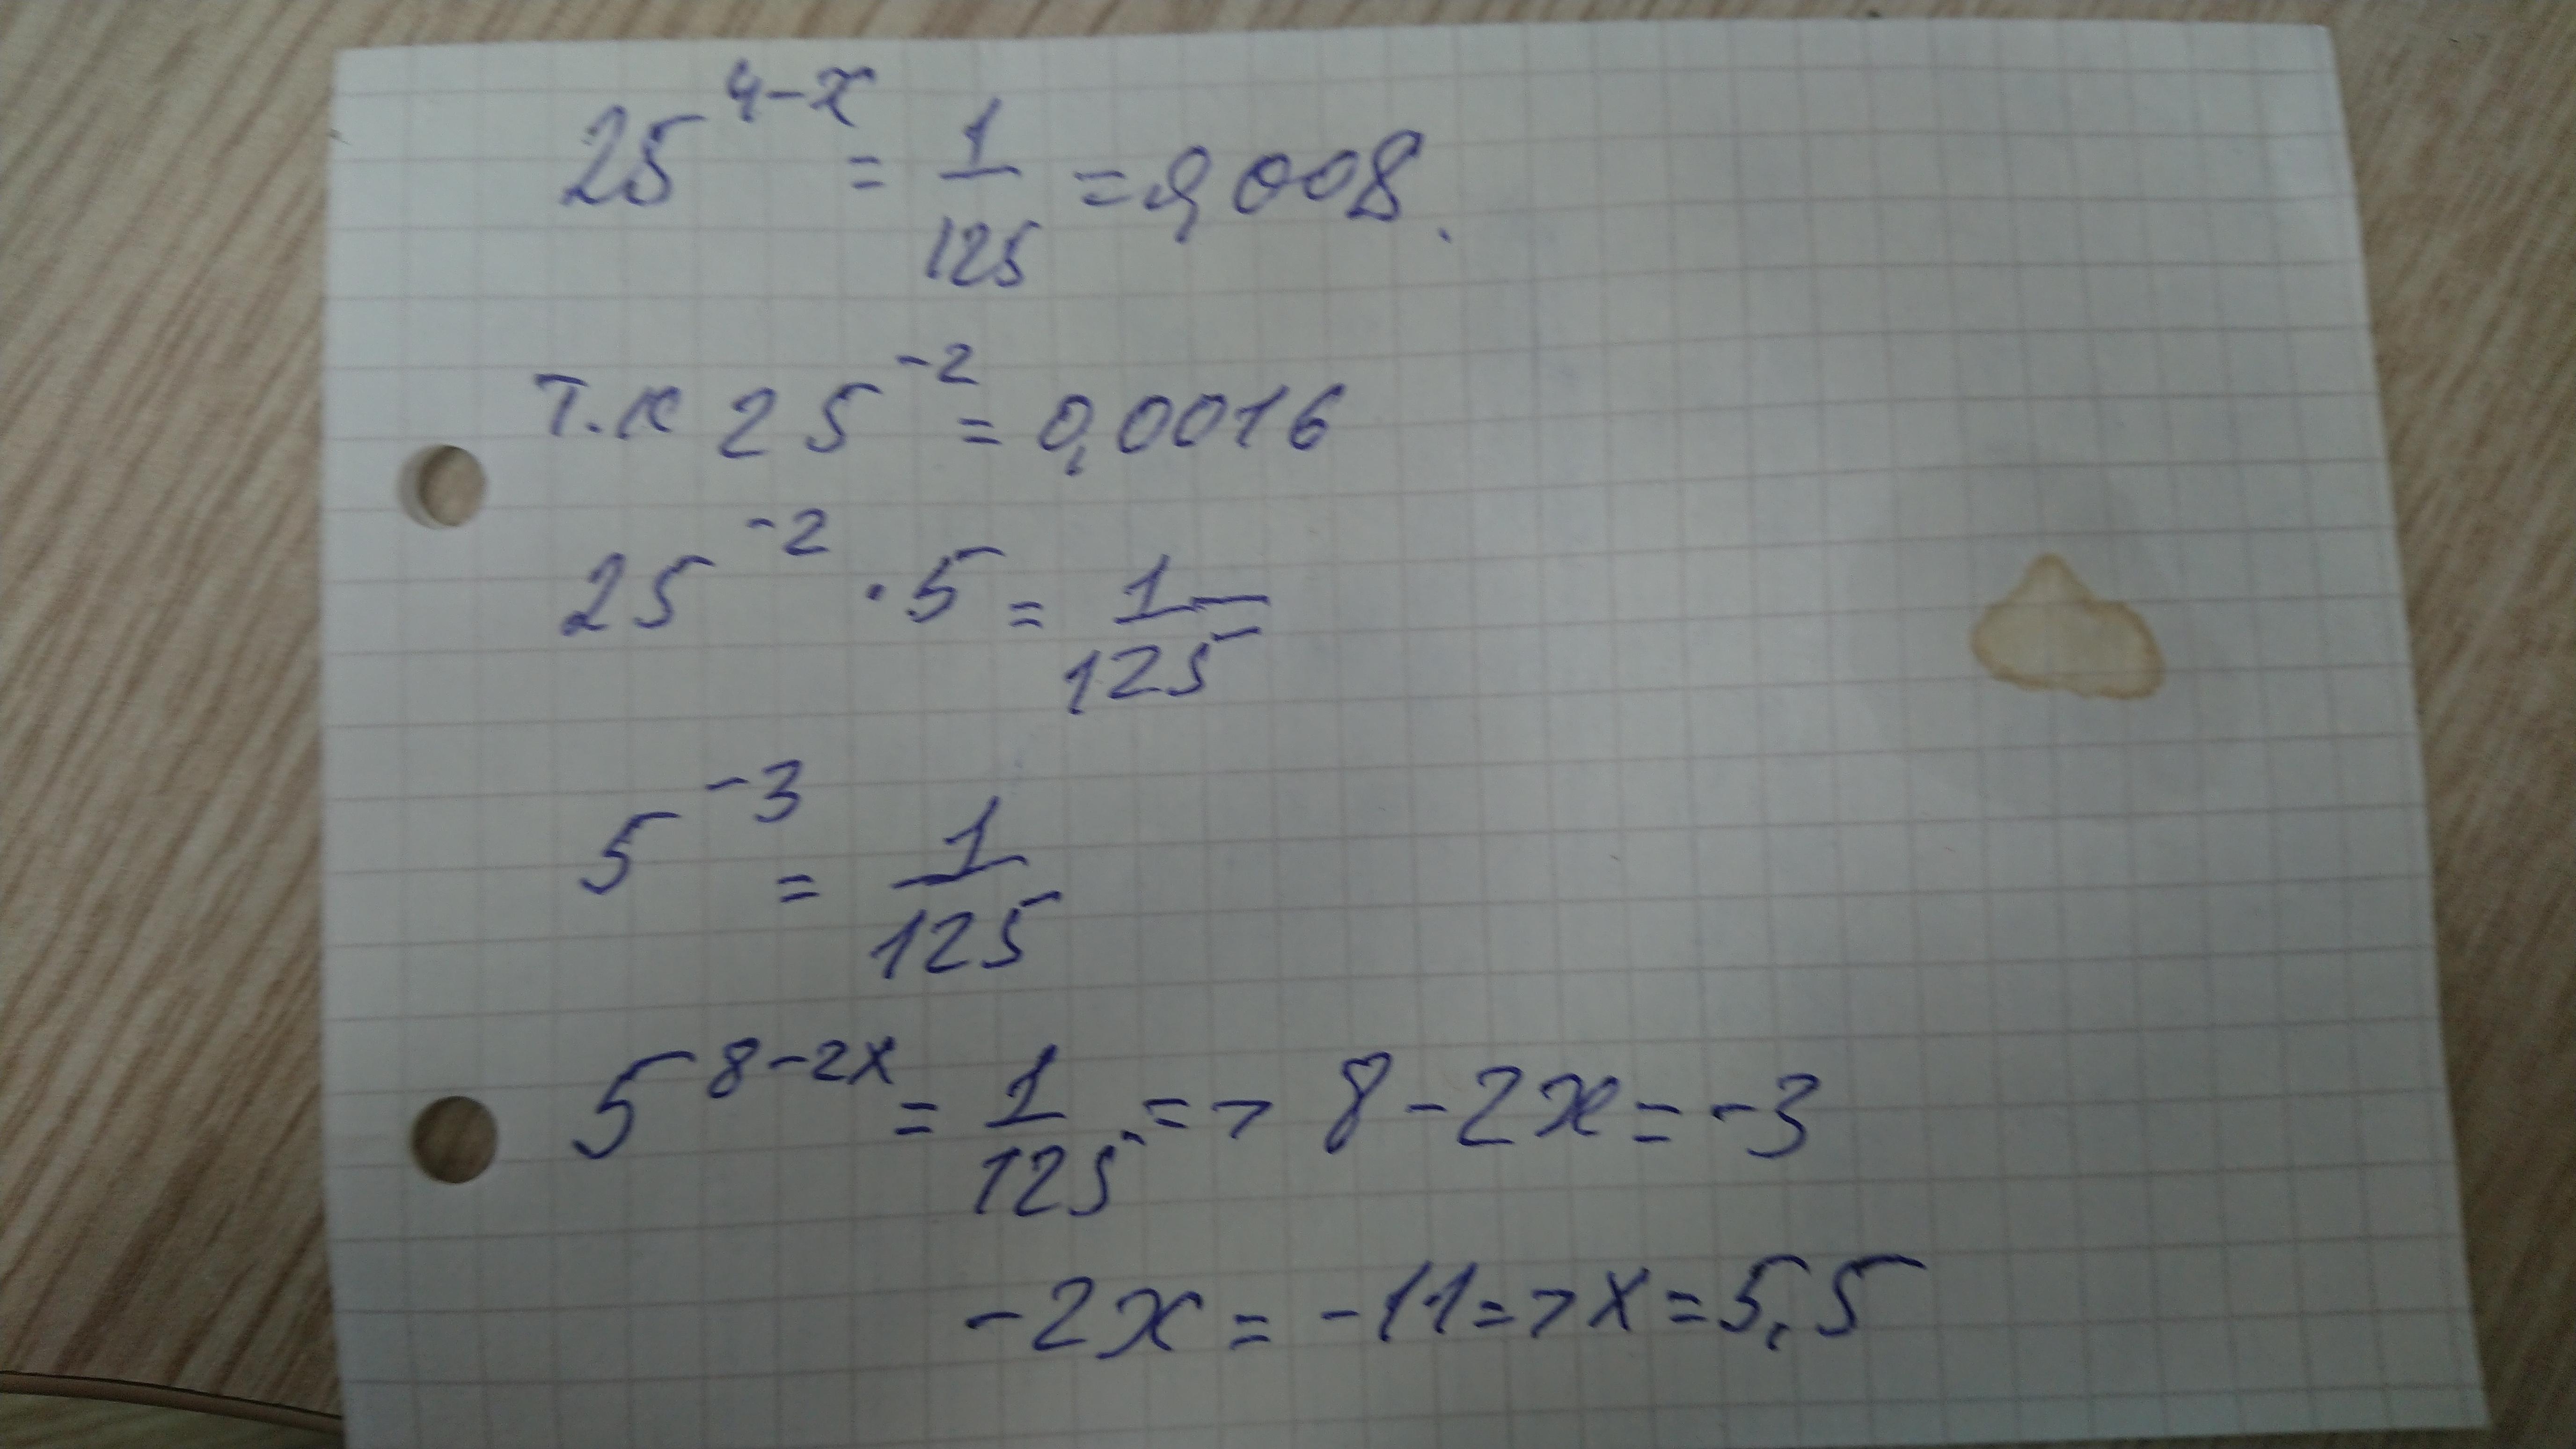 25^{4-x} = \frac{1}{125} = 0,008.
т.к 25^{-2} = 0,0016
25^{-2} · 5 = \frac{1}{125}
5^{-3} = \frac{1}{125}
5^{8-2x} = \frac{1}{125} => 8-2x = -3
-2x = -11 => x = 5,5